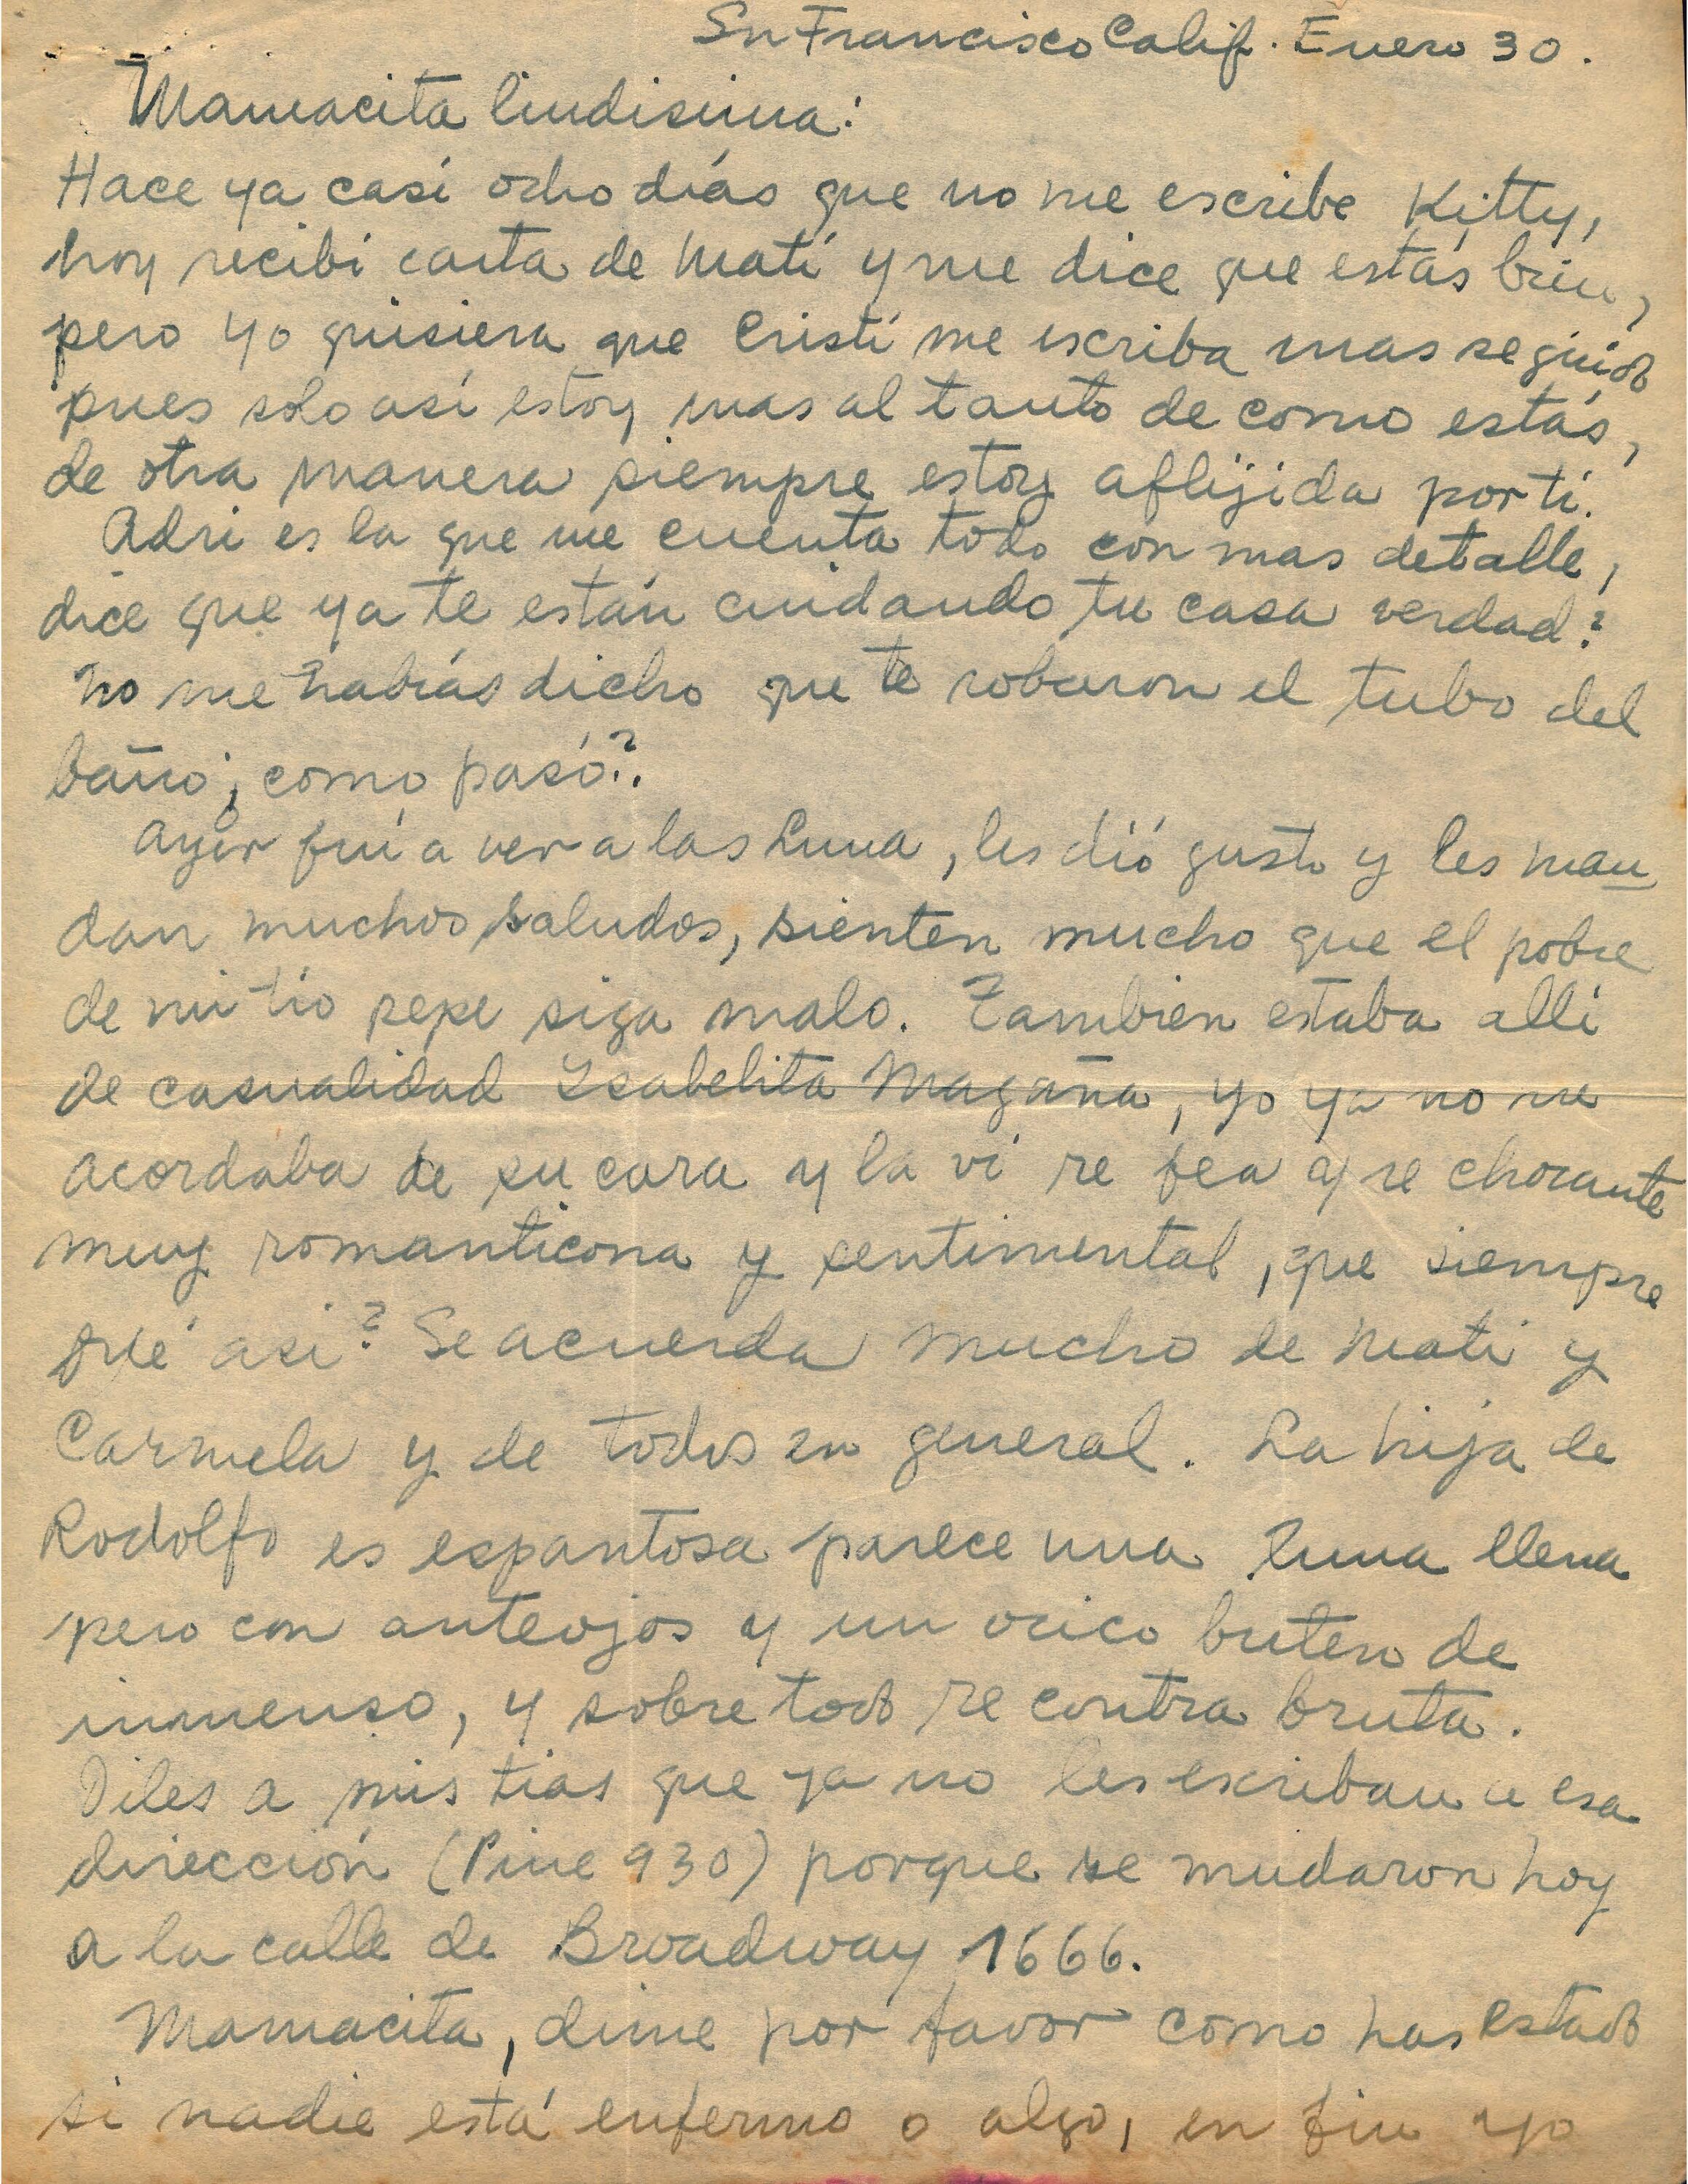 Sn Francisco Calif. Enero 30.
Mamacita lindisima:
Hace ya casi ocho días que no me escribe Kitty,
hoy recibí carta de Mati y me dice que estás bien,
pero yo quisiera que Cristi me escriba mas seguido
pues solo así estoy mas al tanto de como estás,
de otra manera siempre estoy aflijida por ti.
Adri es la que me cuenta todo con mas detalle,
dice que ya te están cuidando tu casa verdad?
no me habías dicho que te robaron el tubo del
baño ¿como pasó?.
Ayer fuí a ver a las Luna, les dió gusto y les man
dan muchos saludos, sienten mucho que el pobre
de mi tío pepe siga malo. Tambien estaba alli
de casualidad Isabelita Magaña, yo ya no me
acordaba de su cara y la ví re fea y re chocante
muy romanticona y sentimental, que siempre
fué asi? Se acuerda mucho de Mati y
Carmela y de todos en general. La hija de
Rodolfo es espantosa parece una luna llena
pero con anteojos y un ocico butero de
inmenso, y sobre todo re contra bruta.
Diles a mis tias que ya no les escriban a esa
dirección (Pine 930) porque se mudaron hoy
a la calle de Broadway 1666.
Mamacita, dime por favor como has estado
si nadie está enfermo o algo, en fin yo